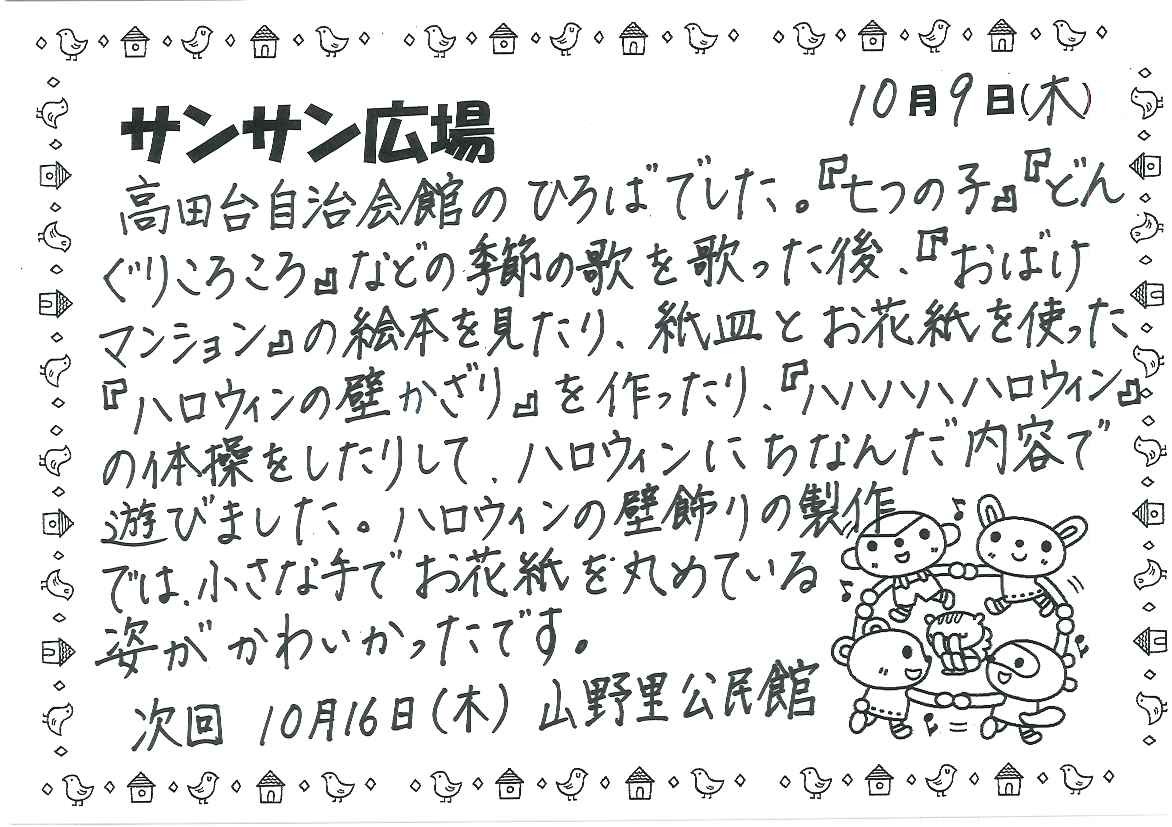 10月9日(木)
サンサン広場
高田台自治会館のひろばでした。『七つの子』『どん
ぐりころころ』などの季節の歌を歌った後、『おばけ
マンション』の絵本を見たり、紙皿とお花紙を使った
『ハロウィンの壁かざり』を作ったり、『ハハハハハロウィン』
の体操をしたりして、ハロウィンにちなんだ内容で
遊びました。ハロウィンの壁飾りの製作
では、小さな手でお花紙を丸めている
姿がかわいかったです。
次回 10月16日(木) 山野里公民館